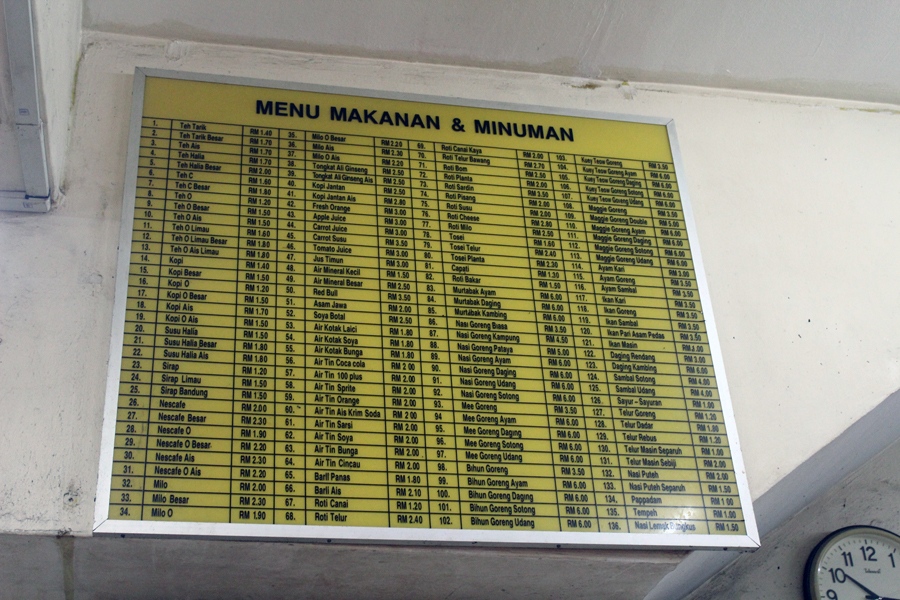 MENU MAKANAN & MINUMAN
1. Teh Tarik RM 1.40
2. Teh Tarik Besar RM 1.70
3. Teh Ais RM 1.70
4. Teh Halia RM 1.70
5. Teh Halia Besar RM 2.00
6. Teh C RM 1.60
7. Teh C Besar RM 1.80
8. Teh O RM 1.20
9. Teh O Besar RM 1.50
10. Teh O Ais RM 1.50
11. Teh O Limau RM 1.60
12. Teh O Limau Besar RM 1.80
13. Teh O Ais Limau RM 1.80
14. Kopi RM 1.40
15. Kopi Besar RM 1.50
16. Kopi O RM 1.20
17. Kopi O Besar RM 1.50
18. Kopi Ais RM 1.70
19. Kopi O Ais RM 1.50
20. Susu Halia RM 1.50
21. Susu Halia Besar RM 1.80
22. Susu Halia Ais RM 1.80
23. Sirap RM 1.20
24. Sirap Limau RM 1.50
25. Sirap Bandung RM 1.50
26. Nescafe RM 2.00
27. Nescafe Besar RM 2.30
28. Nescafe O RM 1.90
29. Nescafe O Besar RM 2.20
30. Nescafe Ais RM 2.30
31. Nescafe O Ais RM 2.20
32. Milo RM 2.00
33. Milo Besar RM 2.30
34. Milo O RM 1.90
35. Milo O Besar RM 2.20
36. Milo Ais RM 2.30
37. Milo O Ais RM 2.20
38. Tongkat Ali Ginseng RM 2.50
39. Tongkat Ali Ginseng Ais RM 2.50
40. Kopi Jantan RM 2.50
41. Kopi Jantan Ais RM 2.80
42. Fresh Orange RM 3.00
43. Apple Juice RM 3.00
44. Carrot Juice RM 3.00
45. Carrot Susu RM 3.50
46. Tomato Juice RM 3.00
47. Jus Timun RM 3.00
48. Air Mineral Kecil RM 1.50
49. Air Mineral Besar RM 2.50
50. Red Bull RM 3.50
51. Asam Jawa RM 2.00
52. Soya Botol RM 2.50
53. Air Kotak Laici RM 1.80
54. Air Kotak Soya RM 1.80
55. Air Kotak Bunga RM 1.80
56. Air Tin Coca cola RM 2 00
57. Air Tin 100 plus RM 2 00
58. Air Tin Sprite RM 2 00
59. Air Tin Orange RM 2 00
60. Air Tin Ais Krim Soda RM 2 00
61. Air Tin Sarsi RM 2 00
62. Air Tin Soya RM 2 00
63. Air Tin Bunga RM 2 00
64. Air Tin Cincau RM 2 00
65. Barli Panas RM 1.80
66. Barli Ais RM 2.10
67. Roti Canai RM 1.20
68. Roti Telur RM 2.40
69. Roti Canai Kaya RM
70. Roti Telur Bawang RM
71. Roti Bom RM
72. Roti Planta RM
73. Roti Sardin RM
74. Roti Pisang RM
75. Roti Susu RM
76. Roti Cheese RM
77. Roti Milo RM
78. Tosei RM
79. Tosei Telur RM
80. Tosei Planta RM
81. Capati RM
82. Roti Bakar RM
83. Murtabak Ayam RM
84. Murtabak Daging RM
85. Murtabak Kambing RM
86. Nasi Goreng Biasa RM
87. Nasi Goreng Kampung RM 4.50
88. Nasi Goreng Pataya RM 5.00
89. Nasi Goreng Ayam RM 6.00
90. Nasi Goreng Daging RM 6.00
91. Nasi Goreng Udang RM 6.00
92. Nasi Goreng Sotong RM 6.00
93. Mee Goreng RM 3.50
94. Mee Goreng Ayam RM 6.00
95. Mee Goreng Daging RM 6.00
96. Mee Goreng Sotong RM 6.00
97. Mee Goreng Udang RM 6.00
98. Bihun Goreng RM 3.50
99. Bihun Goreng Ayam RM 6.00
100. Bihun Goreng Daging RM 6.00
101. Bihun Goreng Sotong RM 6.00
102. Bihun Goreng Udang RM 6.00
103. Kuey Teow Goreng RM 3.50
104. Kuey Teow Goreng Ayam RM 6.00
105. Kuey Teow Goreng Daging RM 6.00
106. Kuey Teow Goreng Sotong RM 6.00
107. Kuey Teow Goreng Udang RM 6.00
108. Maggie Goreng RM
109. Maggie Goreng Double RM
110. Maggie Goreng Ayam RM 6.00
111. Maggie Goreng Daging RM 6.00
112. Maggie Goreng Sotong RM 6.00
113. Maggie Goreng Udang RM 6.00
114. Ayam Kari RM
115. Ayam Goreng RM
116. Ayam Sambal RM
117. Ikan Kari RM
118. Ikan Goreng RM
119. Ikan Sambal RM
120. Ikan Pari Asam Pedas RM
121. Ikan Masin RM
122. Daging Rendang RM
123. Daging Kambing RM
124. Sambal Sotong RM
125. Sambal Udang RM
126. Sayur – Sayuran RM 1.00
127. Telur Goreng RM
128. Telur Dadar RM
129. Telur Rebus RM
130. Telur Masin Separuh RM
131. Telur Masin Sebiji RM
132. Nasi Puteh RM
133. Nasi Puteh Separuh RM
134. Pappadam RM 1.00
135. Tempeh RM 1.00
136. Nasi Lemak Bungkus RM 1.50
12
11
1
10